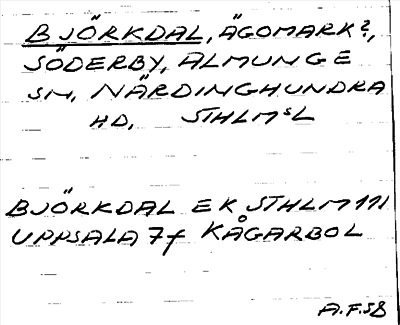 BJÖRKDAL, ÄGOMARK?,
SÖDERBY, ALMUNGE
SN, NÄRDINGHUNDRA
HD, STHLMSL
BJÖRKDAL EK STHLM 111
UPPSALA 7f KÅGARBOL
A.F.SB